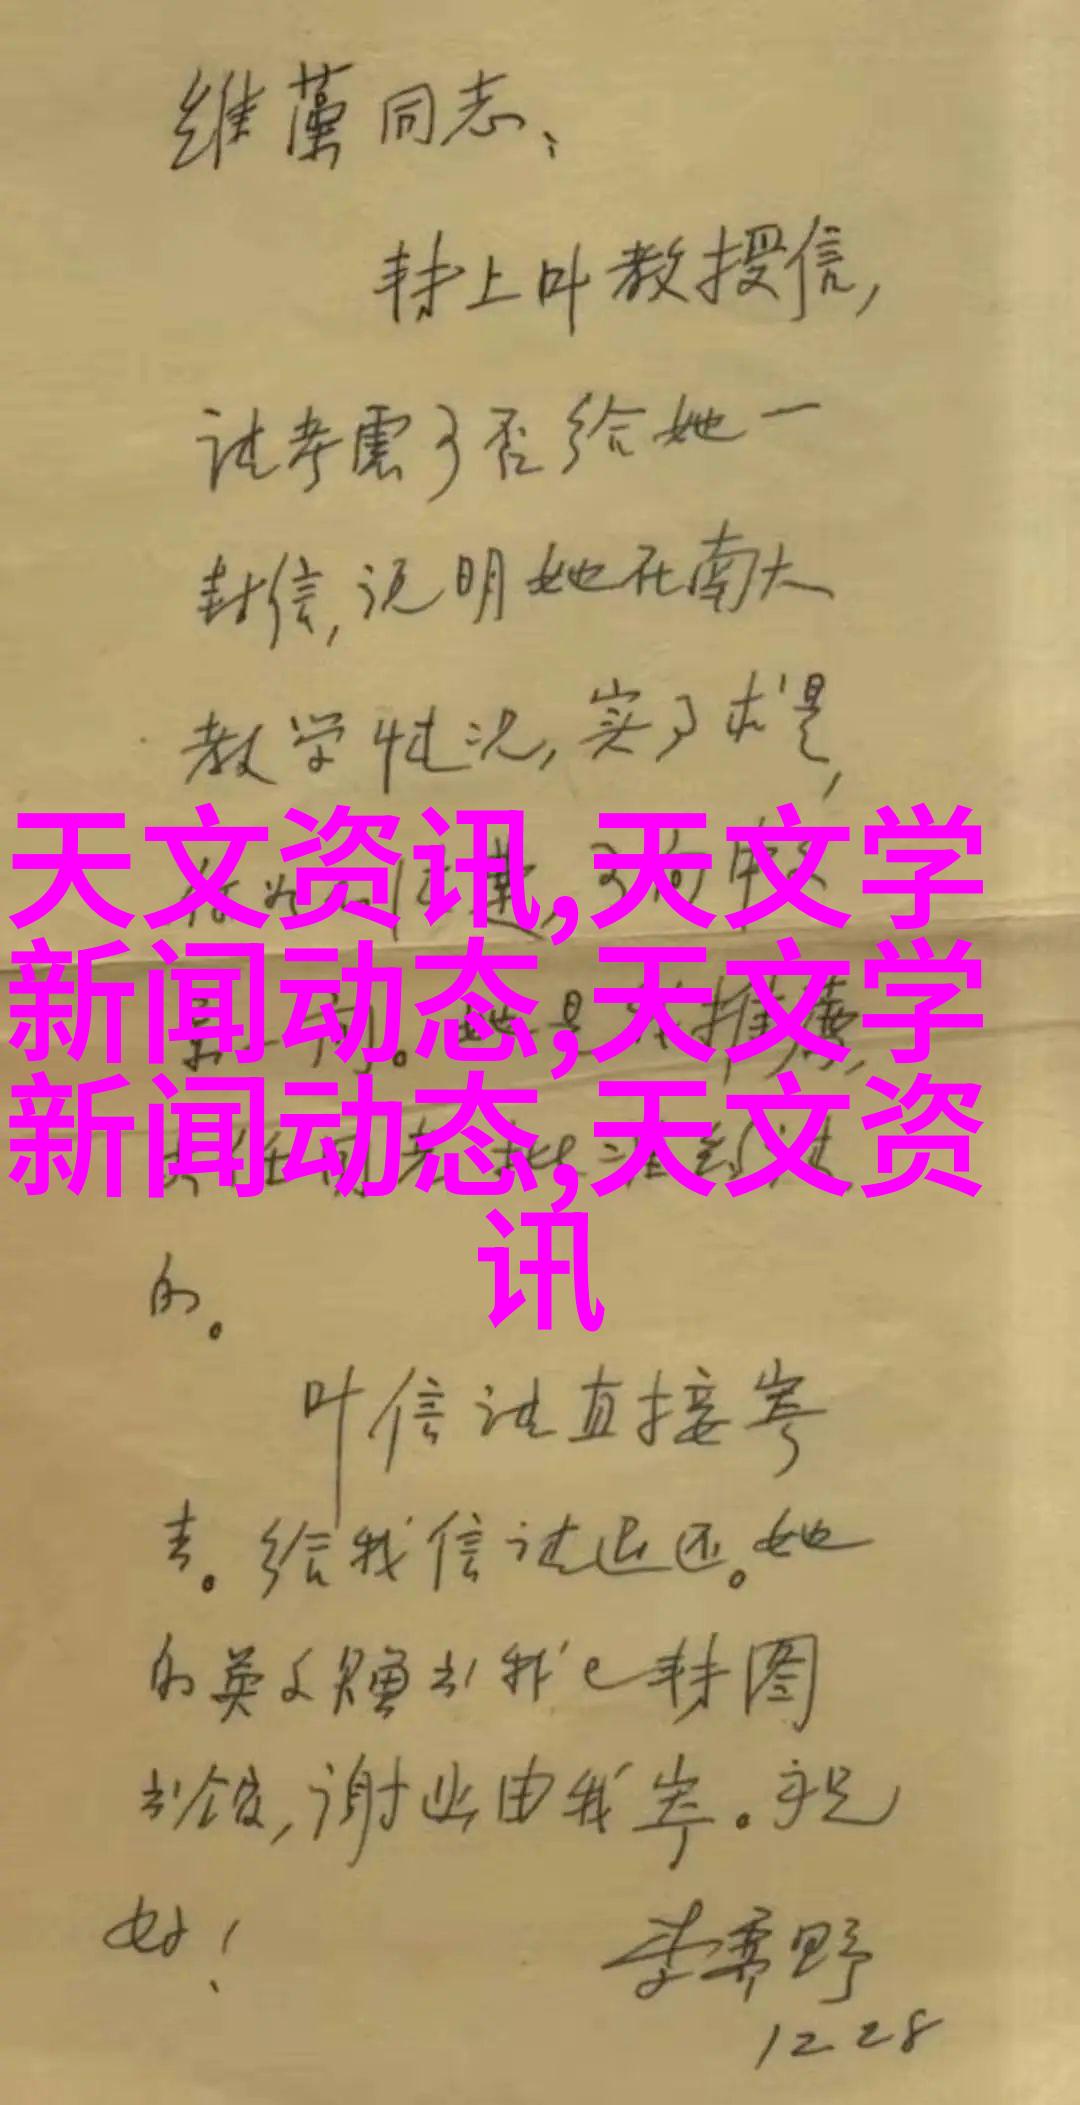 维藻同志、
转上叶教授信,
请考虑可否给她一
封信,说明她在南大
教学情况,实事求是,
天文资讯,天文学
新闻动态,天文学
新闻动态,天文资
讯
的。
叶信请直接寄
去。给我信请退还。她
的英文赠书我已转图
书馆,谢也由我寄。祝
好!
李霁野
12 28